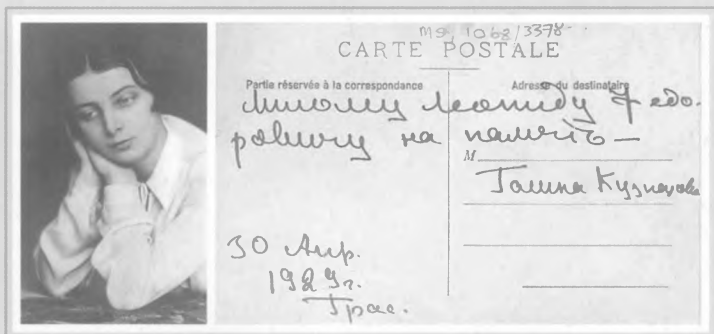 MS. 1068/3378
CARTE POSTALE
Partie réservée à la correspondance
Adresse du destinataire
Милому Леониду Федо-
ровичу на память —
M
Галина Кузнецова
30 Апр.
1929г.
Грас.